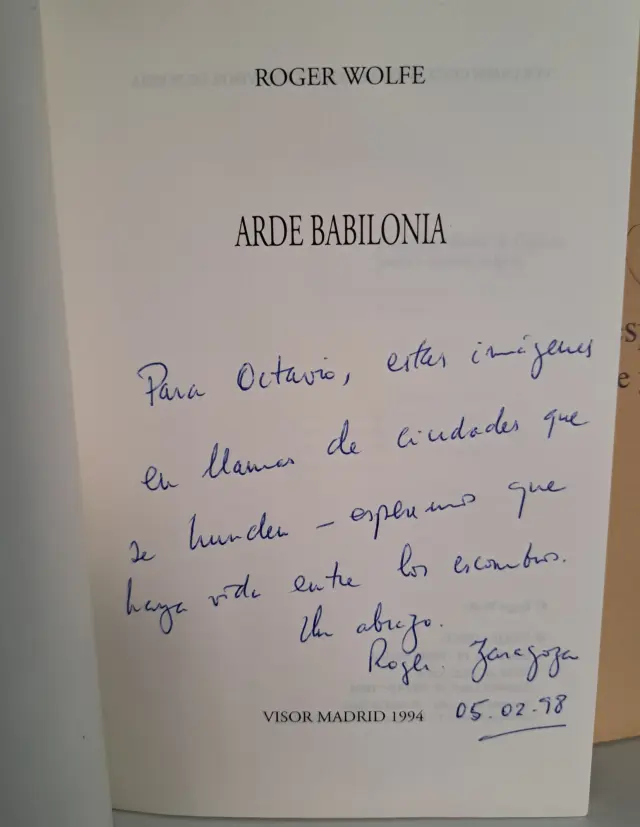 ROGER WOLFE
ARDE BABILONIA
Para Octavio, estas imágenes
en llamas de ciudades que
se hunden – esperemos que
haya vida entre los escombros.
Un abrazo.
Roger. Zaragoza
VISOR MADRID 1994 05.02.98